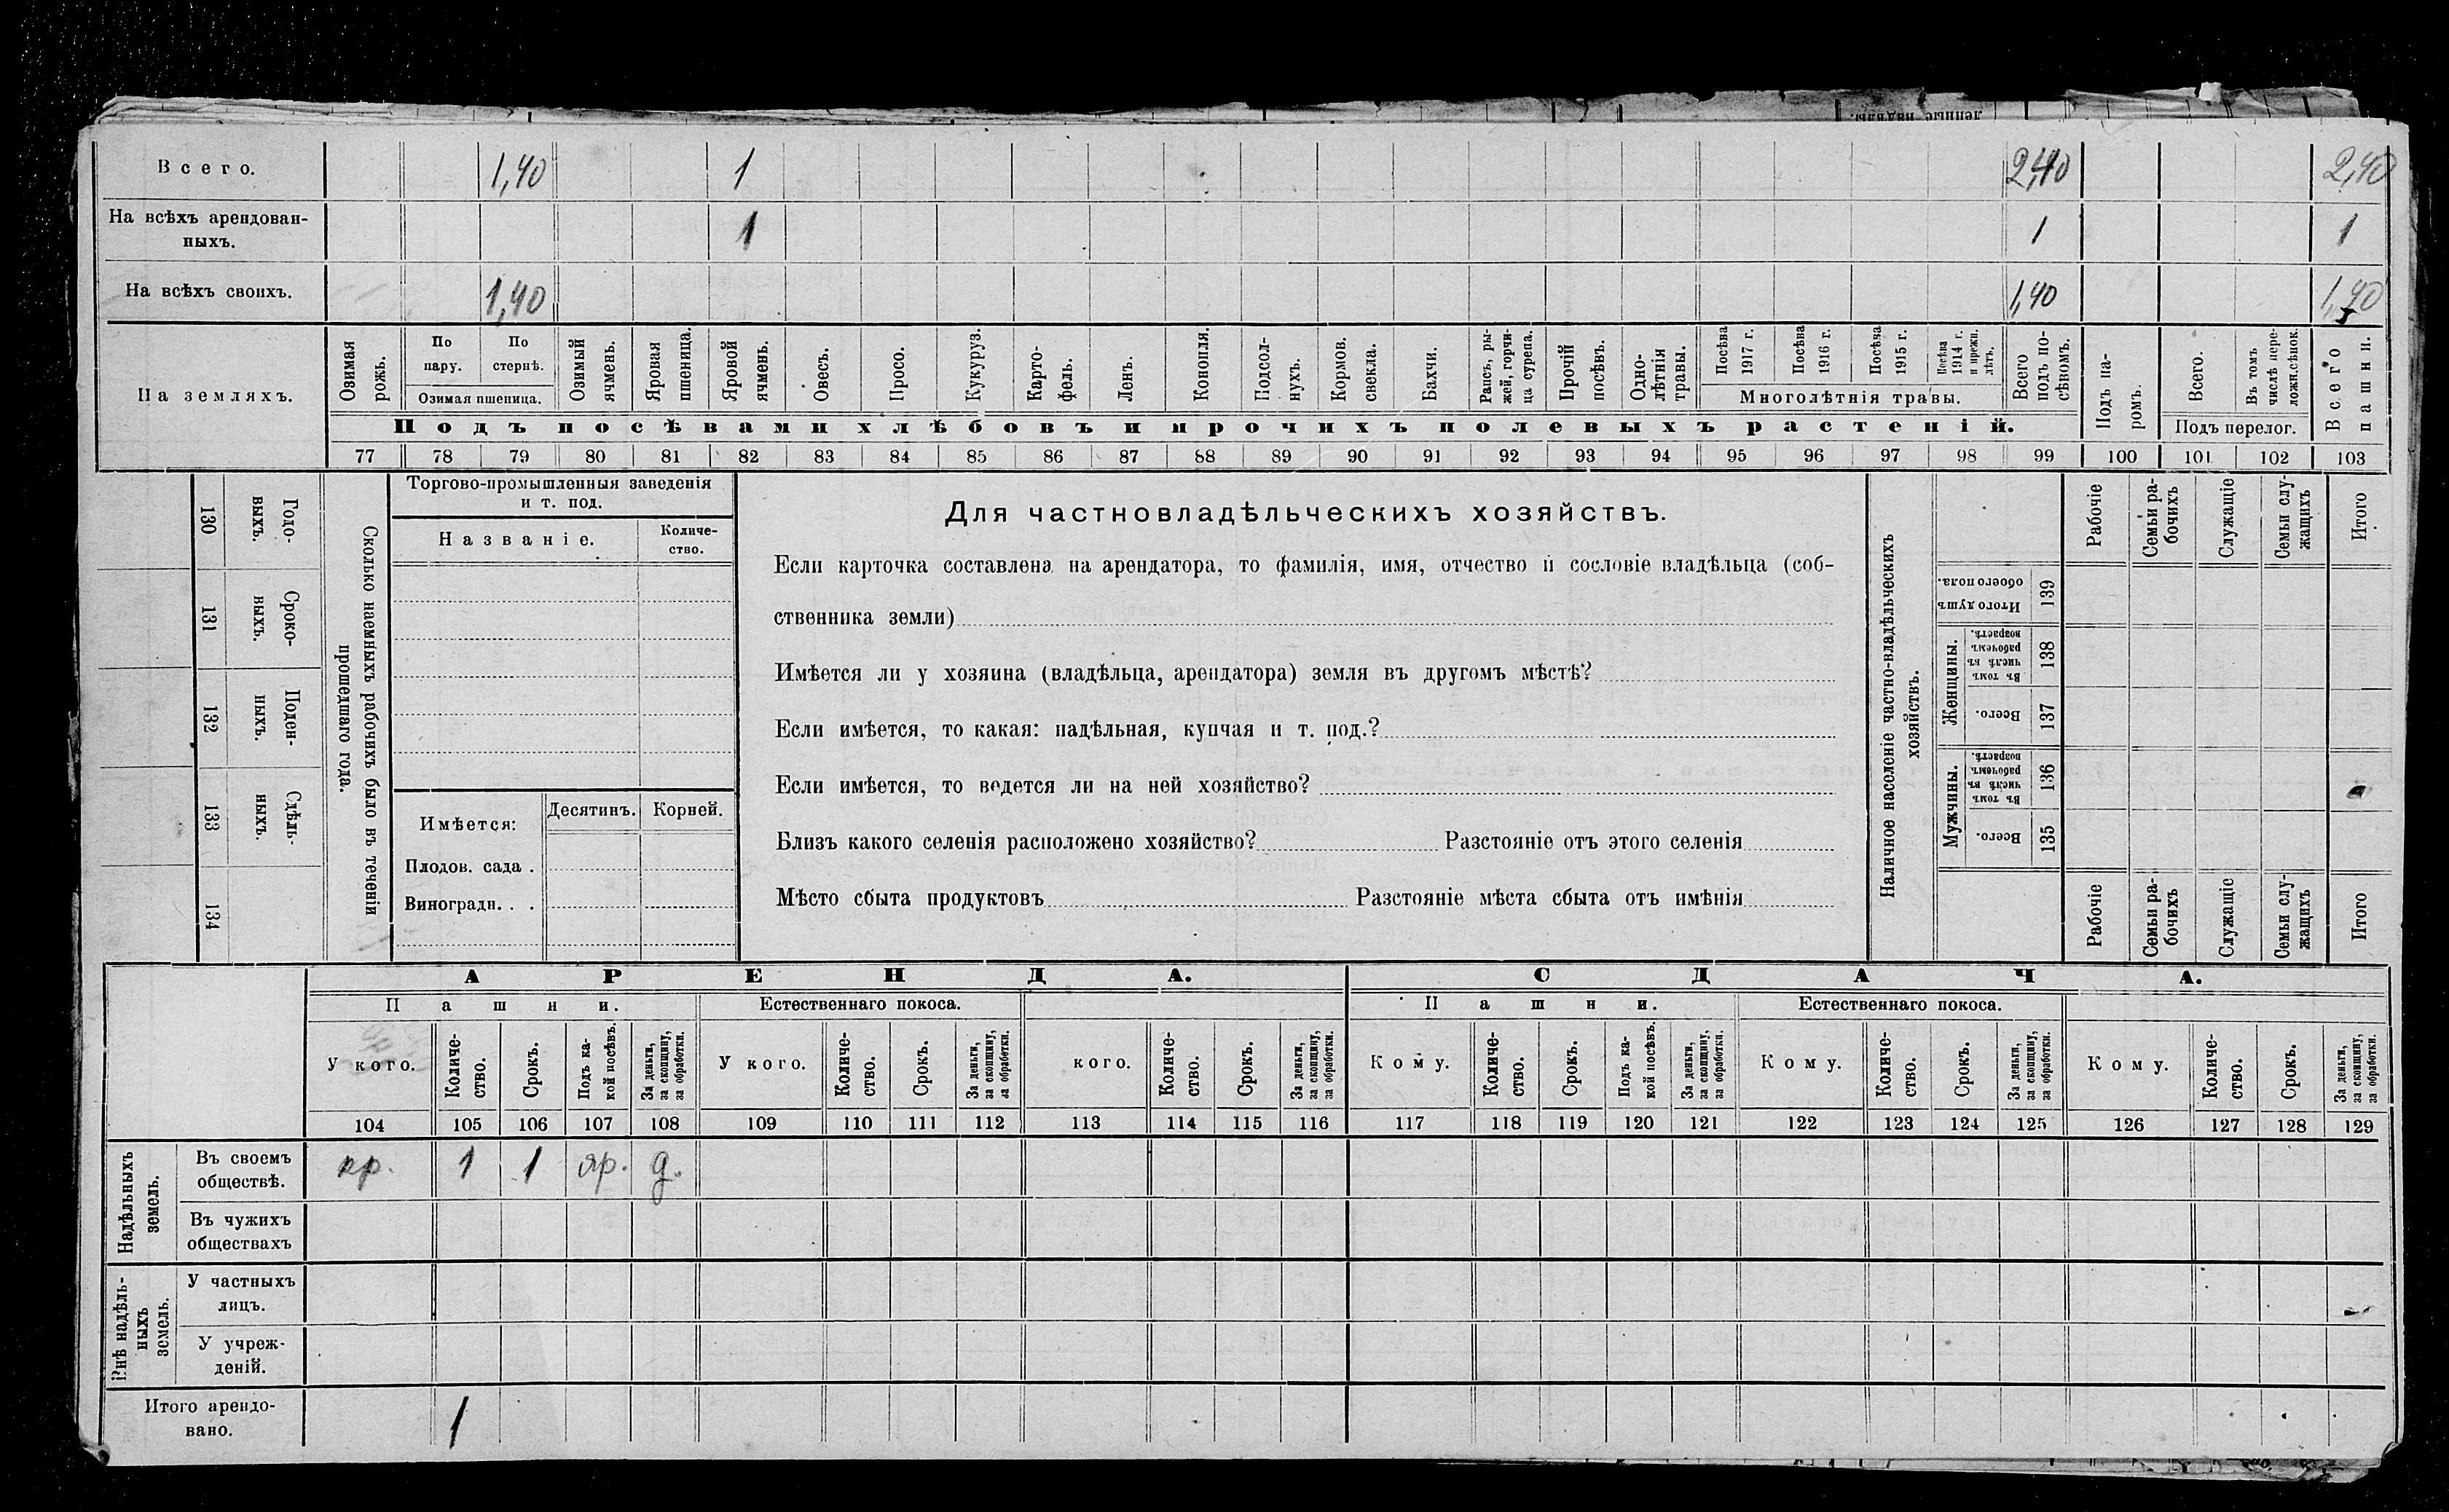 Всего. 1,40 1 2,40 2,40
На всѣхъ арендован-
ныхъ. 1 1 1
На всѣхъ своихъ. 1,40 1,40 1,40
На земляхъ.
Озимая рожь.
По пару.
По стернѣ.
Озимая пшеница.
Озимый ячмень.
Яровая пшеница.
Яровой ячмень.
Овесъ.
Просо.
Кукуруз.
Карто-
фель.
Ленъ.
Конопля.
Подсол-
нухъ.
Кормов. свекла.
Бахчи.
Рапсъ, ры-
жей, горчи-
ца сурепа.
Прочій посѣвъ.
Одно-
лѣтнія травы.
Посѣва 1917 г.
Посѣва 1916 г.
Посѣва 1915 г.
Посѣва 1914 г. и прежн. лѣтъ.
Многолѣтнія травы.
Всего подъ по-
сѣвомъ.
Подъ па-
ромъ.
Всего.
Въ томъ числѣ пере-
ложн.сѣнок.
Подъ перелог.
Всего пашни.
Подъ посѣвами хлѣбовъ и прочихъ полевыхъ растеній.
77 78 79 80 81 82 83 84 85 86 87 88 89 90 91 92 93 94 95 96 97 98 99 100 101 102 103
130 Годо-
выхъ.
131 Сроко-
выхъ.
132 Поден-
ныхъ.
133 Сдѣль-
ныхъ.
134
Сколько наемныхъ рабочихъ было въ теченіи
прошедшаго года.
Торгово-промышленныя заведенія
и т. под.
Названіе.
Количе-
ство.
Имѣется: Десятинъ. Корней.
Плодов. сада .
Виноградн. . .
Для частновладѣльческихъ хозяйствъ.
Если карточка составлена на арендатора, то фамилія, имя, отчество и сословіе владѣльца (соб-
ственника земли)
Имѣется ли у хозяина (владѣльца, арендатора) земля въ другомъ мѣстѣ?
Если имѣется, то какая: надѣльная, купчая и т. под.?
Если имѣется, то ведется ли на ней хозяйство?
Близъ какого селенія расположено хозяйство? Разстояніе отъ этого селенія
Мѣсто сбыта продуктовъ Разстояніе мѣста сбыта отъ имѣнія
Наличное населеніе частно-владѣльческихъ
хозяйствъ.
Рабочіе
Семьи ра-
бочихъ
Служащіе
Семьи слу-
жащихъ
Итого
Итого душъ обоего пола. 139
Женщины.
Въ томъ числѣ въ рабочемъ возрастѣ. 138
Всего. 137
Мужчины.
Въ томъ числѣ въ рабочемъ возрастѣ. 136
Всего. 135
Рабочіе
Семьи ра-
бочихъ
Служащіе
Семьи слу-
жащихъ
Итого
АРЕНДА. СДАЧА.
Пашни. Естественнаго покоса. Пашни. Естественнаго покоса.
У кого.
Количе-
ство.
Срокъ.
Подъ ка-
кой посѣвъ.
За деньги,
за скопщину,
за обработки.
У кого.
Количе-
ство.
Срокъ.
За деньги,
за скопщину,
за обработки.
кого.
Количе-
ство.
Срокъ.
За деньги,
за скопщину,
за обработки.
Кому.
Количе-
ство.
Срокъ.
Подъ ка-
кой посѣвъ.
За деньги,
за скопщину,
за обработки.
Кому.
Количе-
ство.
Срокъ.
За деньги,
за скопщину,
за обработки.
Кому.
Количе-
ство.
Срокъ.
За деньги,
за скопщину,
за обработки.
104 105 106 107 108 109 110 111 112 113 114 115 116 117 118 119 120 121 122 123 124 125 126 127 128 129
Надѣльныхъ
земель.
Въ своемъ
обществѣ. кр. 1 1 яр. д.
Въ чужихъ
обществахъ
Внѣ надѣль-
ныхъ
земель.
У частныхъ
лицъ.
У учреж-
деній.
Итого арендо-
вано. 1